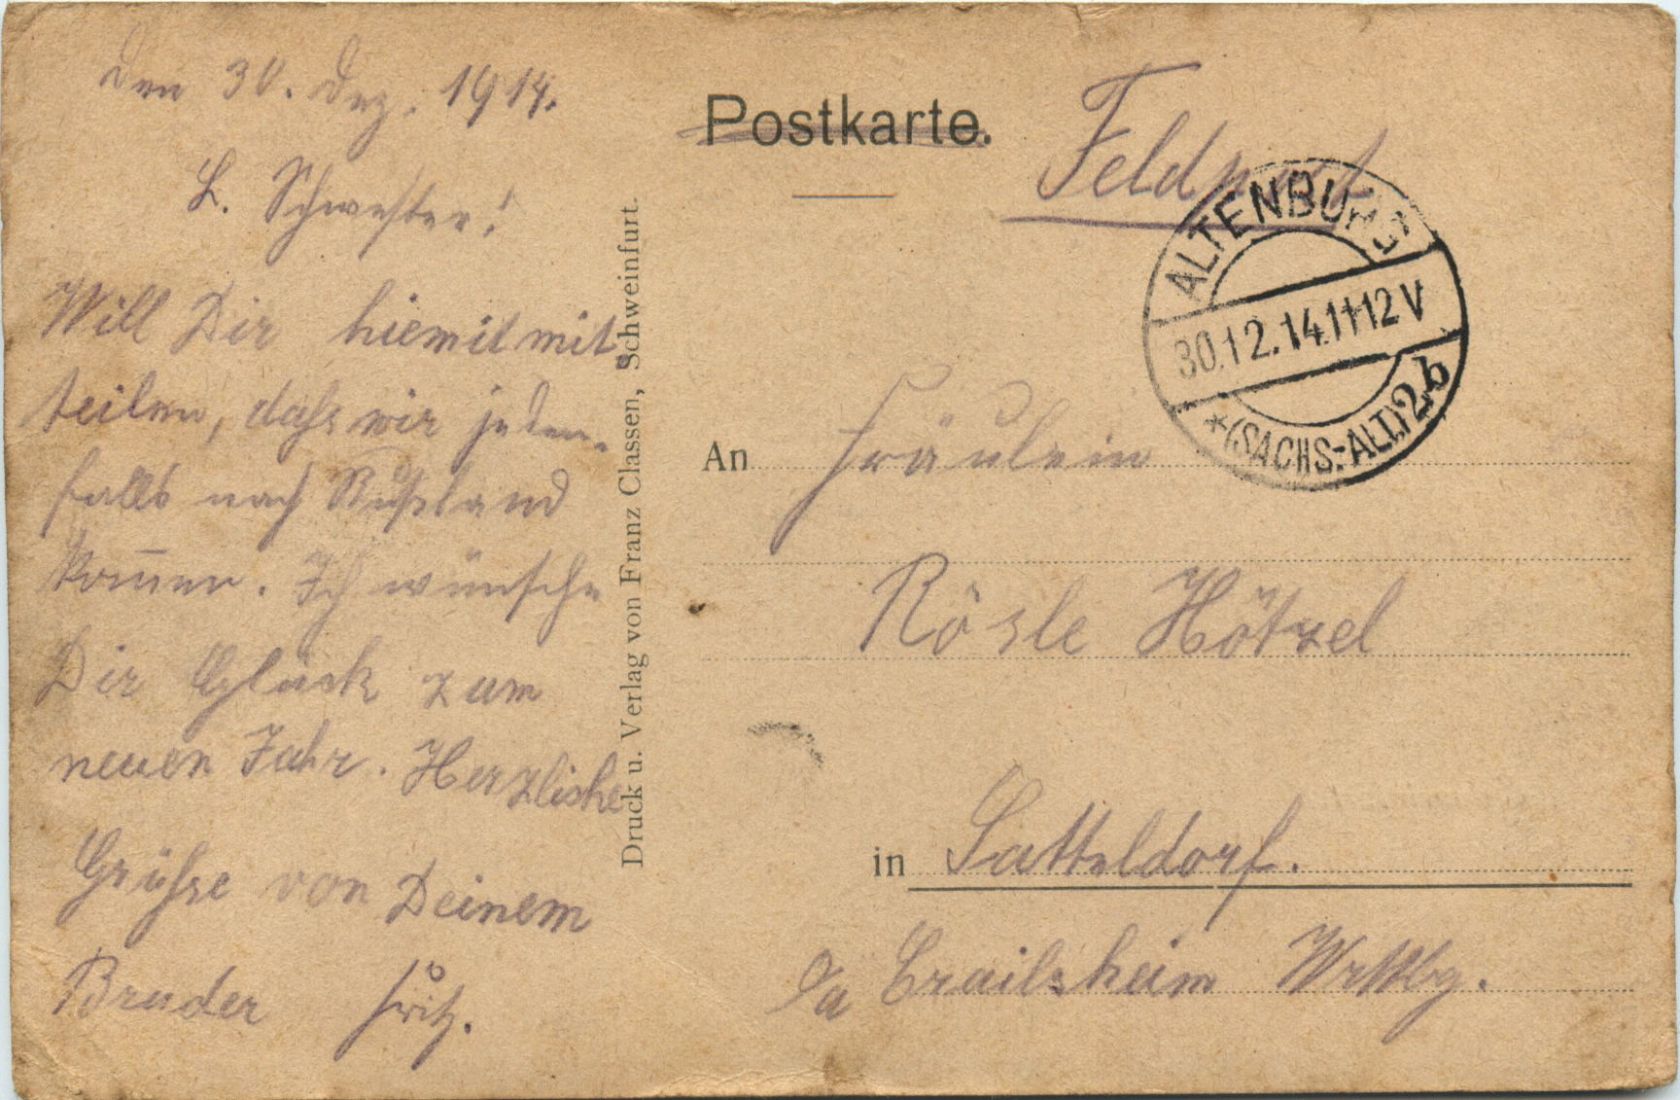 Den 30. Dez. 1914.
L. Schwester!
Will Dir hiemit mit-
teilen, daſs wir jeden-
falls nach Rußland
kom̄en. Ich wünsche
Dir Glück zum
neuen Jahr. Herzliche
Grüſse von Deinem
Bruder Fritz.
Druck u. Verlag von Franz Classen, Schweinfurt.
Postkarte.
Feldpost
ALTENBURG
30.12.14.11-12V
*(SACHS.-ALT.)2b
An Fräulein
Rösle Hötzel
in Satteldorf.
o/a Crailsheim Wrttbg.